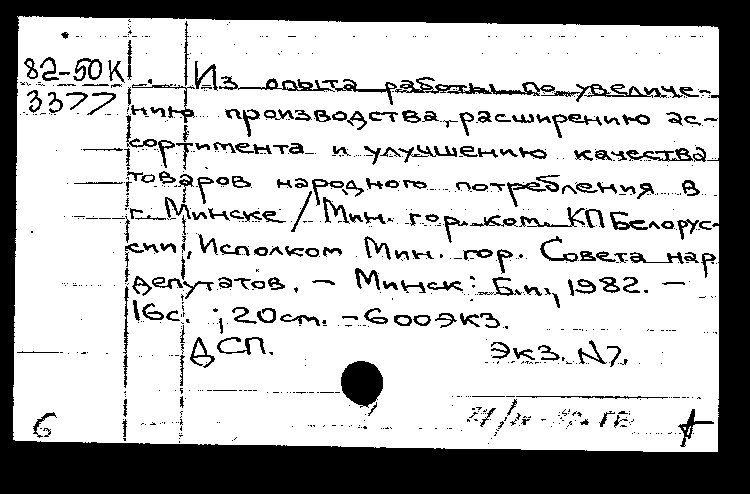 82-50К . Из опыта работы по увеличе-
3377 нию производства, расширению ас-
сортимента и улучшению качества
товаров народного потребления в
г. Минске / Мин. гор. ком. КП Белорус-
сии, Исполком Мин. гор. Совета нар
депутатов. - Минск: Б.и., 1982. -
16с. ; 20см. - 600экз.
ДСП. Экз. N7.
6